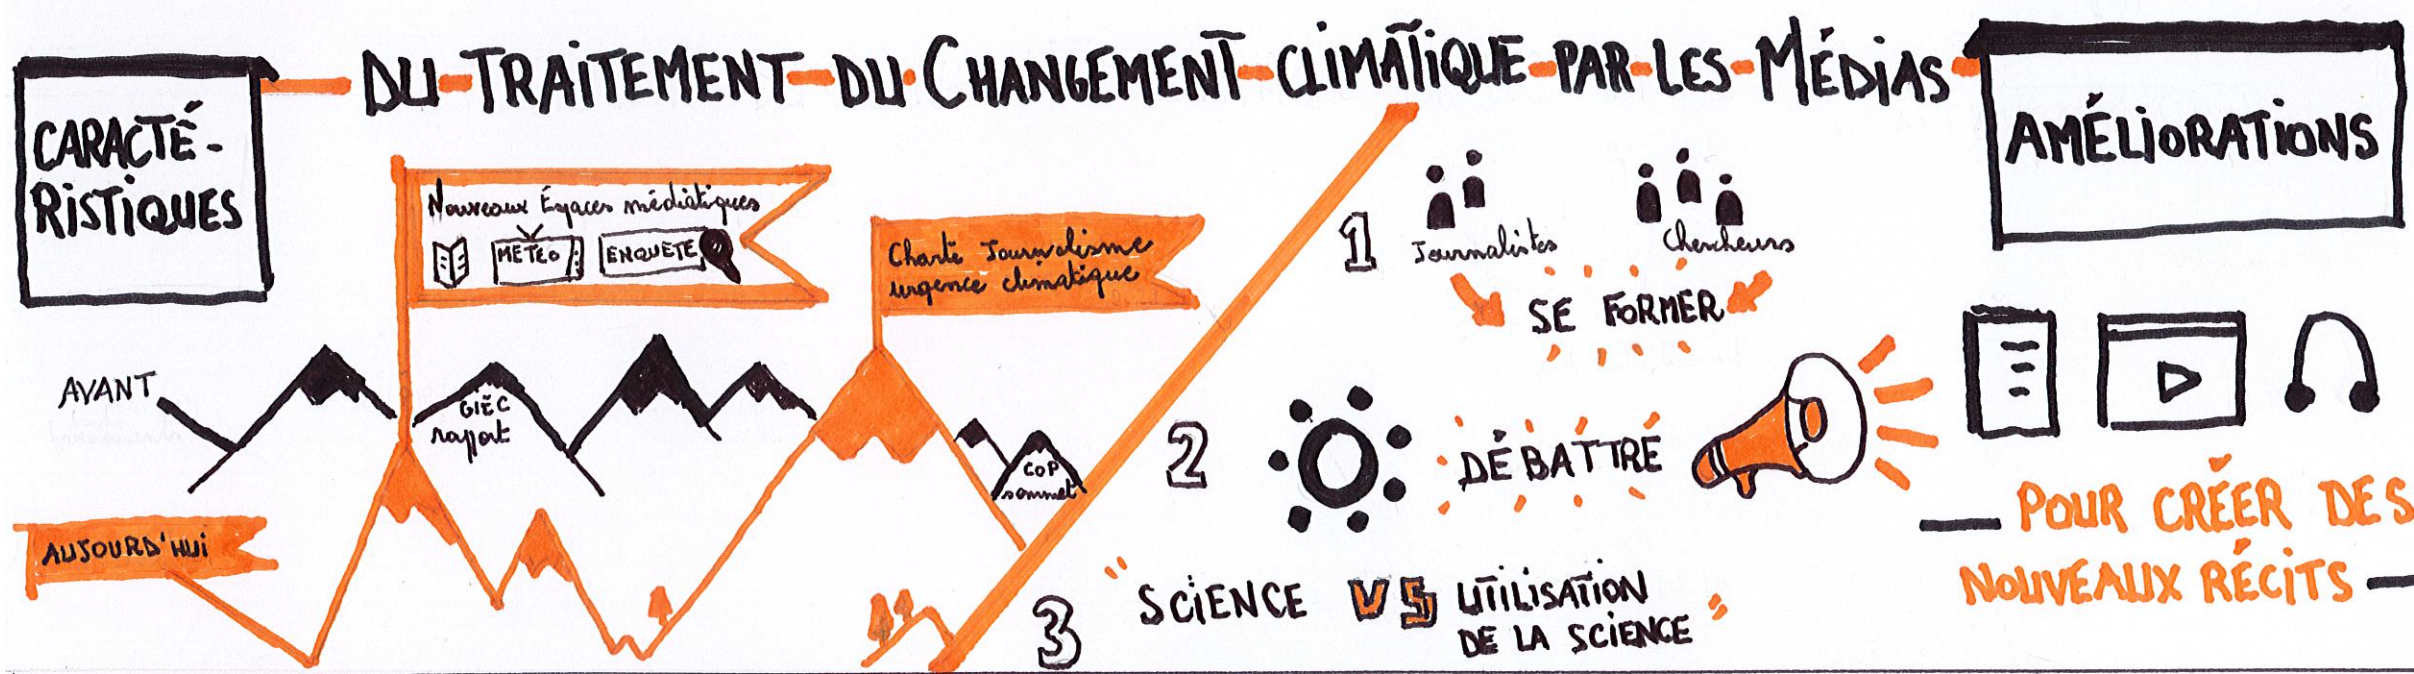 CARACTÉ-
RISTIQUES
DU TRAITEMENT DU CHANGEMENT CLIMATIQUE PAR LES MÉDIAS
AMÉLIORATIONS
Nouveaux Espaces médiatiques
MÉTÉO
ENQUÊTE
Charte Journalisme
urgence climatique
AVANT
GIEC
rapport
COP
sommet
AUJOURD'HUI
1
Journalistes
Chercheurs
SE FORMER
2
DÉBATTRE
3
"SCIENCE VS UTILISATION
DE LA SCIENCE"
POUR CRÉER DES
NOUVEAUX RÉCITS